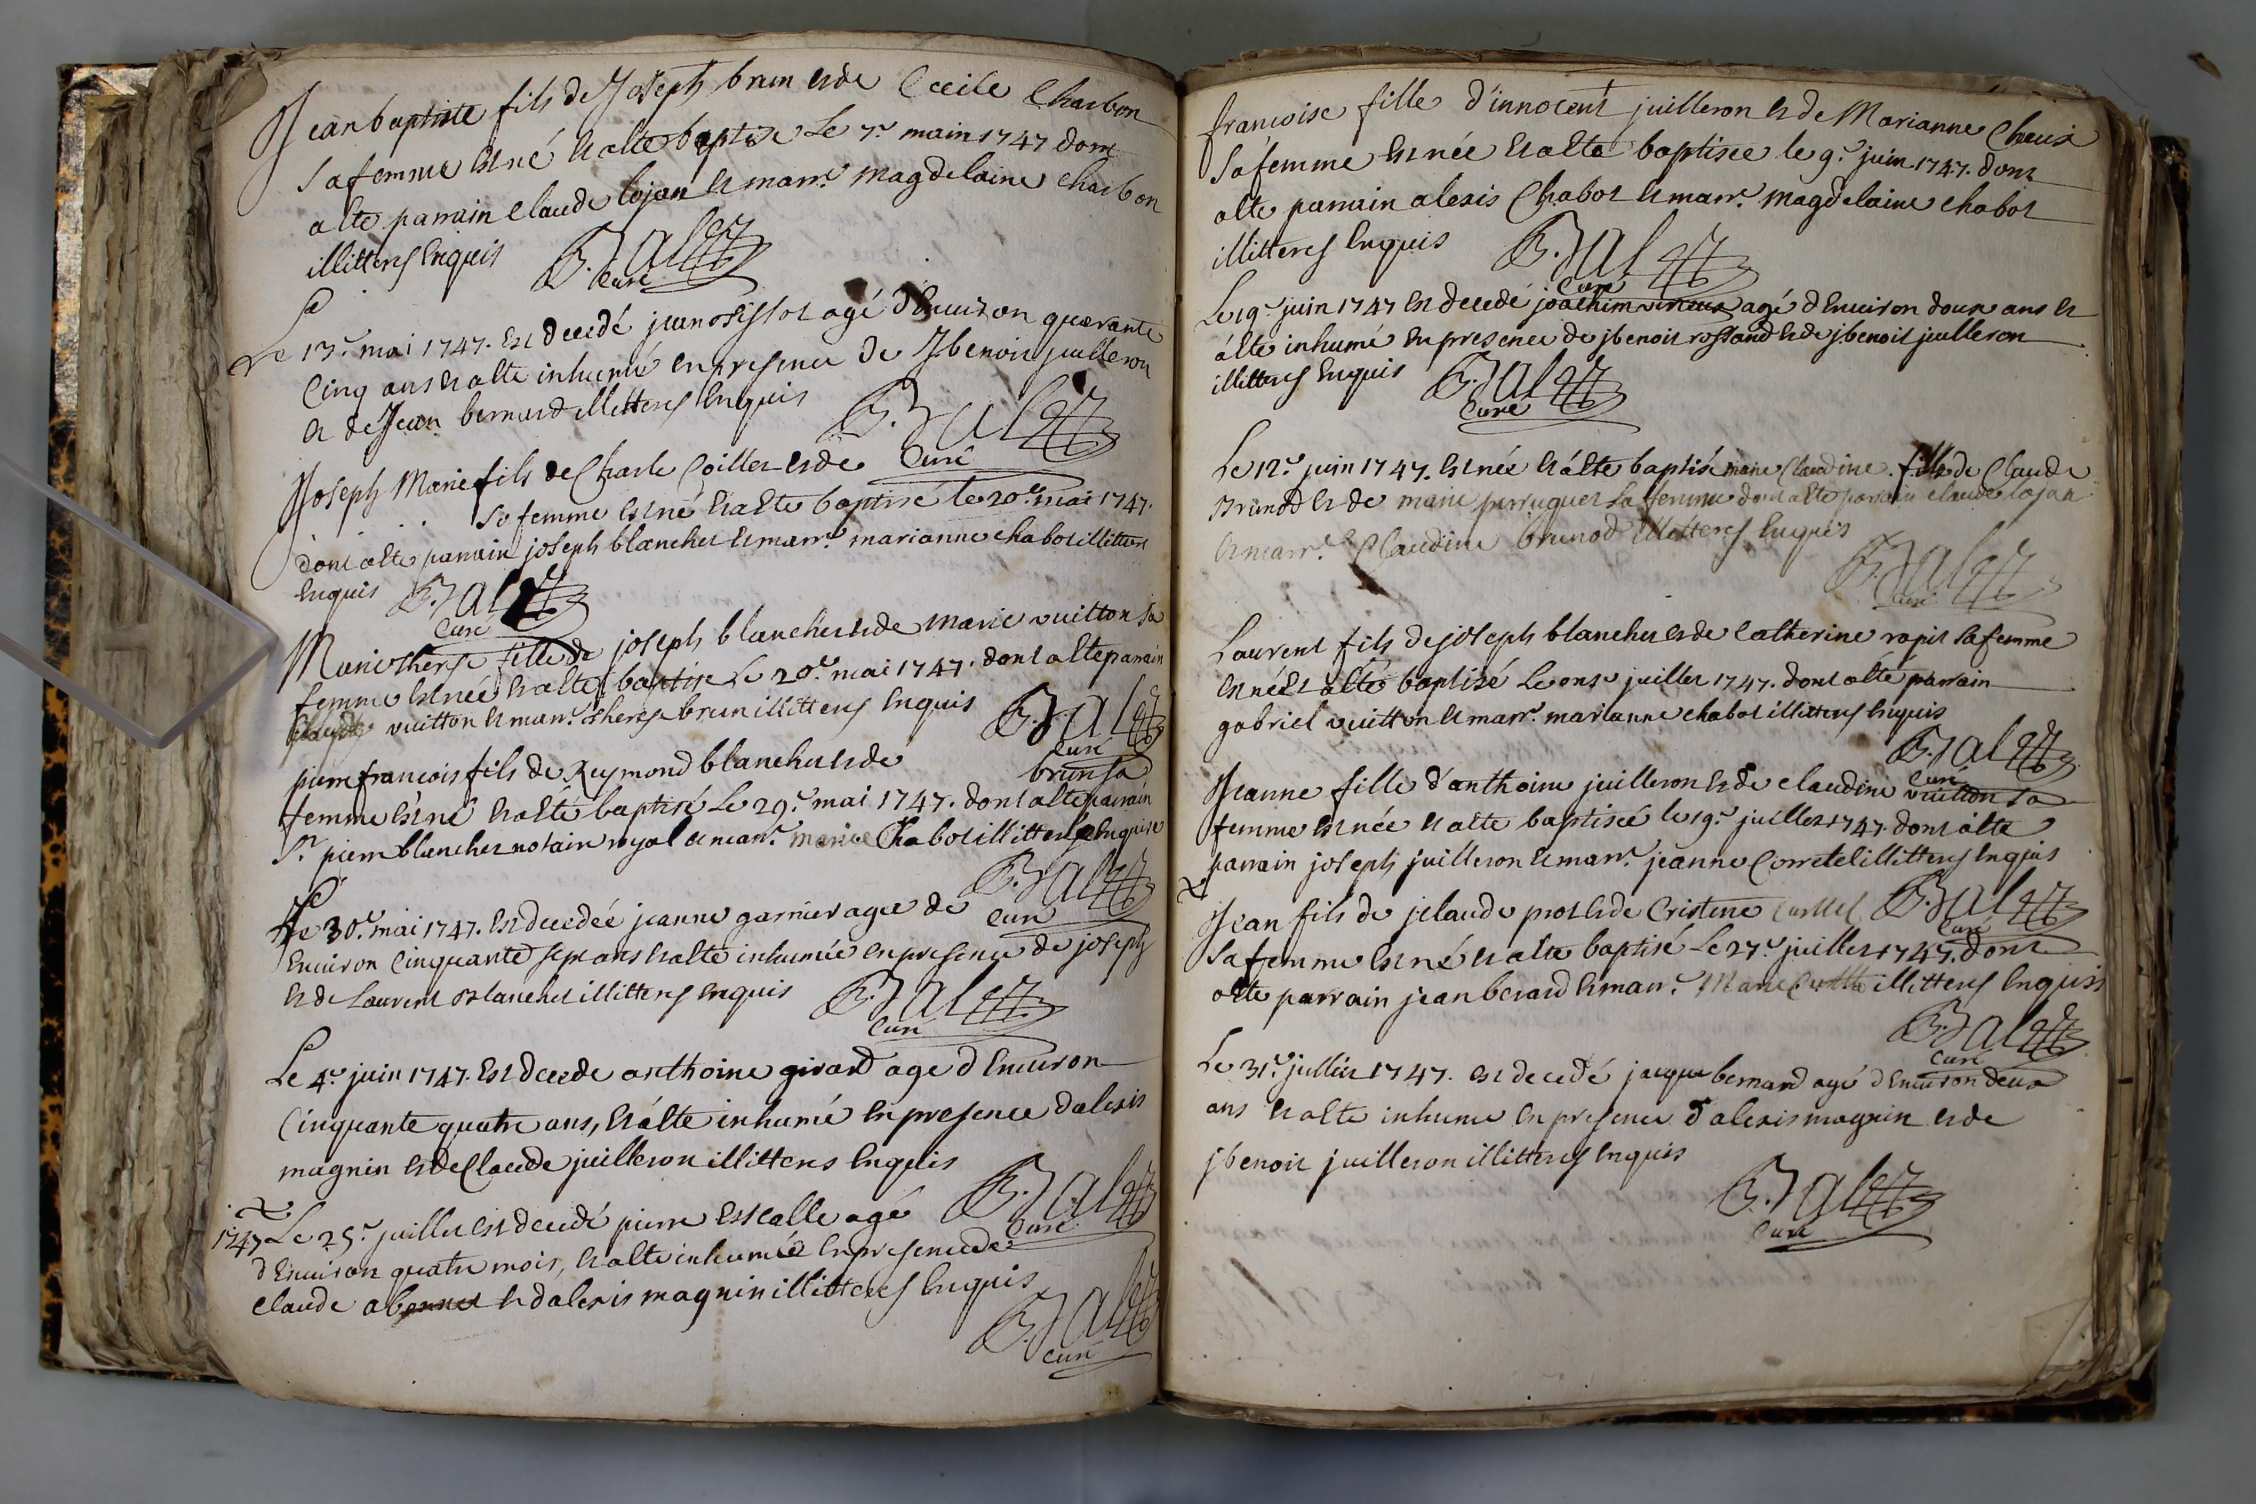 Jean baptiste fils de Joseph brun et de Cecile Charbon
sa femme est né et a esté baptisé Le 7e. mai 1747 dont
a esté parrain claude lojan et marr.e magdelaine charbon
illitterés Enquis B. Jalez
curé
Le 13e. mai 1747. est decedé jean agé d'Environ quarante
Cinq ans et a esté inhumé en presence de J benoit juilleron
et de Jean bernard illitterés Enquis B. Jalez
Curé
Joseph Marie fils de Charle Coillet et de
sa femme est né et a esté baptisé le 20e. mai 1747.
dont a esté parrain joseph blanchet et marr.e marianne chabot illitterés
Enquis B. Jalez
Curé
Marie therese fille de joseph blanchet et de Marie vuitton sa
femme est née et a esté baptisée Le 20e. mai 1747. dont a esté parrain
vuitton et marr.e therese brun illitterés Enquis B. Jalez
Curé
pierre francois fils de Reymond blanchet et de brun sa
femme est né et a esté baptisé Le 29e. mai 1747. dont a esté parrain
Sr. pierre blanchet notaire royal et marr.e marie Chabot illitterée Enquise
B. Jalez
Curé
Le 30e. mai 1747. est decedée jeanne garnier agee de
Environ Cinquante sept ans et a esté inhumée en presence de joseph
et de Laurent blanchet illitterés enquis B. Jalez
Curé
Le 4e. juin 1747. est decede anthoine girard age d'Environ
Cinquante quatre ans, et a esté inhumé En presence d'alexis
magnin et de Claude juilleron illitterés Enquis B. Jalez
Curé
1747 Le 25e. juillet est decedé pierre Escalle agé
d'Environ quatre mois, et a esté inhumé En presence de
claude et d'alexis magnin illitterés Enquis
B. Jalez
curé
francoise fille d'innocent juilleron et de Marianne
sa femme est née et a esté baptisée le 9e. juin 1747. dont
a esté parrain alexis Chabot et marr.e magdelaine chabot
illitterés Enquis B. Jalez
Curé
Le 19e. juin 1747 est decedé joachim agé d'Environ deux ans et
a esté inhumé En presence de j benoit rossand et de j benoit juilleron
illitterés Enquis B. Jalez
Curé
Le 12e. juin 1747. est née et a esté baptisé marie Claudine fille de Claude
Brunod et de marie perruquet sa femme dont a esté parrain claude lojan
et marr.e Claudine brunod illitterés Enquis
B. Jalez
Curé
Laurent fils de joseph blanchet et de catherine rapit sa femme
est né et a esté baptisé Le onze juillet 1747. dont a esté parrain
gabriel vuitton et marr.e marianne chabot illitterés Enquis
B. Jalez
Curé
Jeanne fille d'anthoine juilleron et de claudine vuitton sa
femme est née et a esté baptisée le 19e. juillet 1747. dont a esté
parrain joseph juilleron et marr.e jeanne illitterés Enquis
B. Jalez
Curé
Jean fils de j claude prost et de Cristine
sa femme est né et a esté baptisé Le 27e. juillet 1747. dont
a esté parrain jean berard et marr.e Marie illitterés Enquis
B. Jalez
Curé
Le 31e. jullier 1747. est decedé jacque bernard agé d'Environ deux
ans et a esté inhume En presence d'alexis magnin et de
j benoit juilleron illitterés Enquis
B. Jalez
Curé